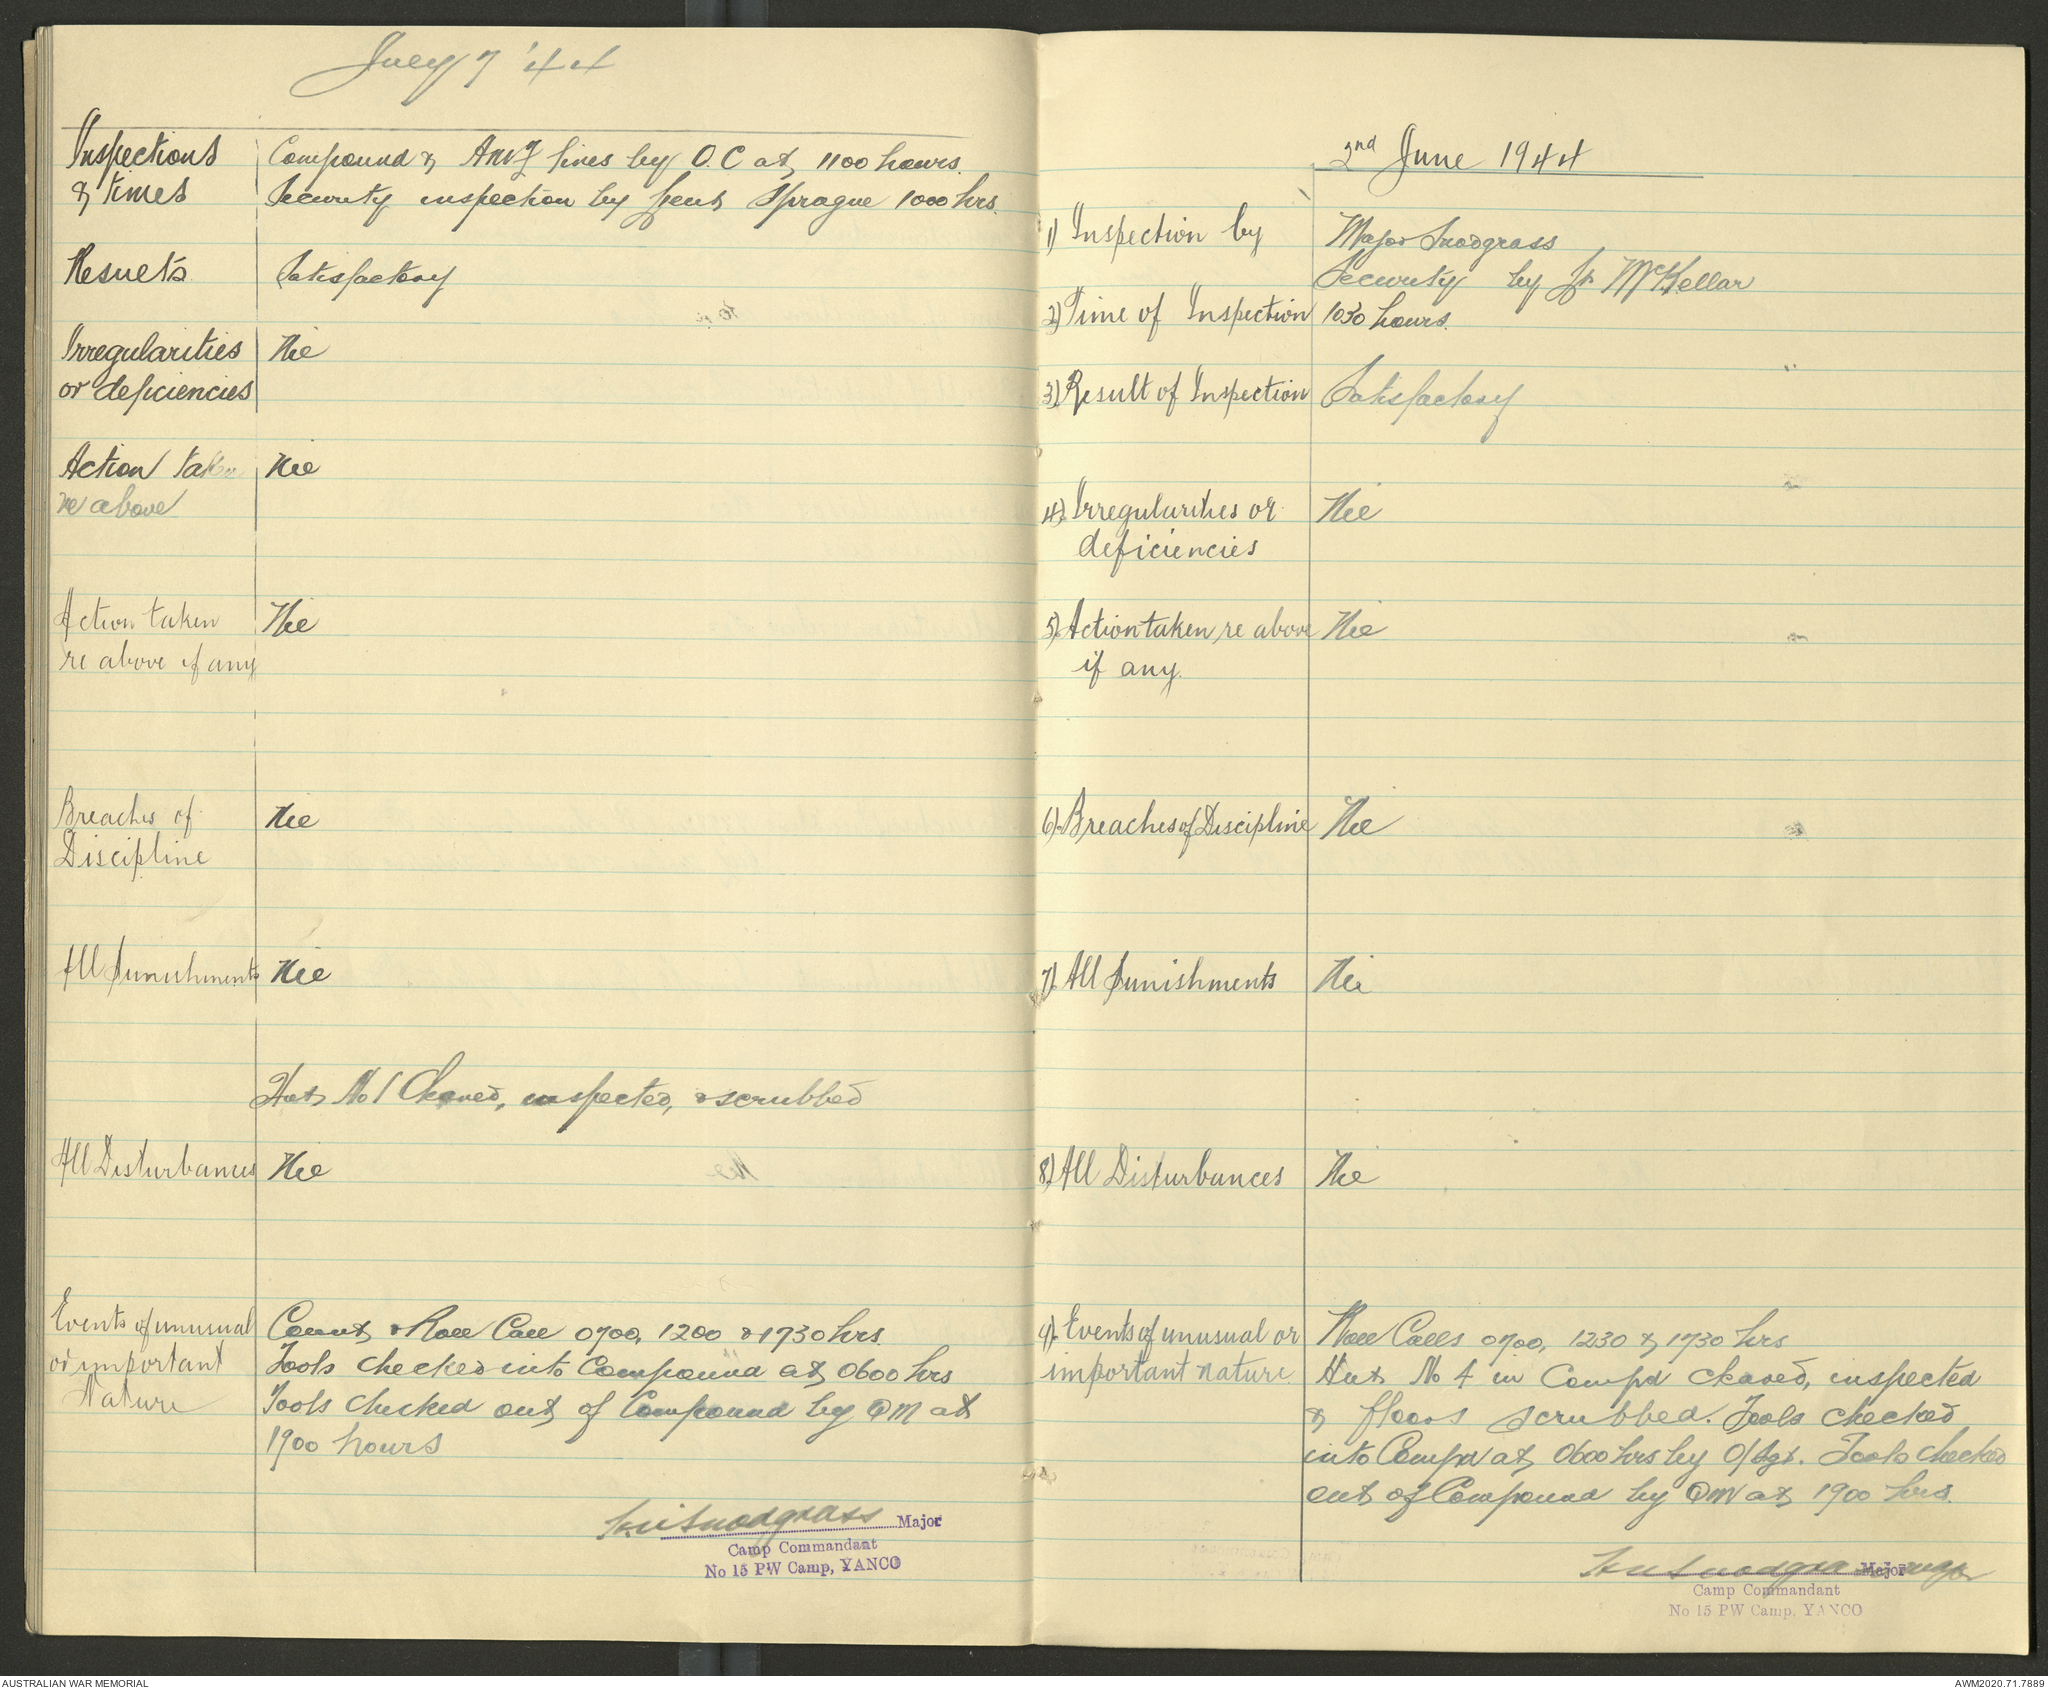 July 7 '44
Inspections & times
Compound & AMF lines by O.C at 1100 hours.
Security inspection by Lieut Sprague 1000 hrs.
Results Satisfactory
Irregularities Nil
or deficiencies
Action taken Nil
re above
Action taken Nil
re above if any
Breaches of Nil
Discipline
All Punishments Nil
Hut No 1 Cleared, inspected, & scrubbed
All Disturbances Nil
Events of unusual
or important
Nature
Count & Roll Call 0700, 1200 & 1730 hrs.
Tools checked into Compound at 0600 hrs
Tools checked out of Compound by QM at
1900 hours
Snodgrass Major
Camp Commandant
No 15 PW Camp, YANCO
2nd June 1944
1) Inspection by Major Snodgrass
Security by Lt McKellar
2) Time of Inspection 1030 hours.
3) Result of Inspection Satisfactory
4) Irregularities or Nil
deficiencies
5) Action taken re above Nil
if any.
6) Breaches of Discipline Nil
7) All Punishments Nil
8) All Disturbances Nil
9) Events of unusual or
important nature.
Roll Calls 0700, 1230 & 1730 hrs
Hut No 4 in Compd cleared, inspected
& floors scrubbed. Tools checked
into Compd at 0600 hrs by O/Sgt. Tools checked
out of Compound by QM at 1900 hrs.
Snodgrass Major
Camp Commandant
No 15 PW Camp, YANCO
AUSTRALIAN WAR MEMORIAL
AWM2020.71.7889